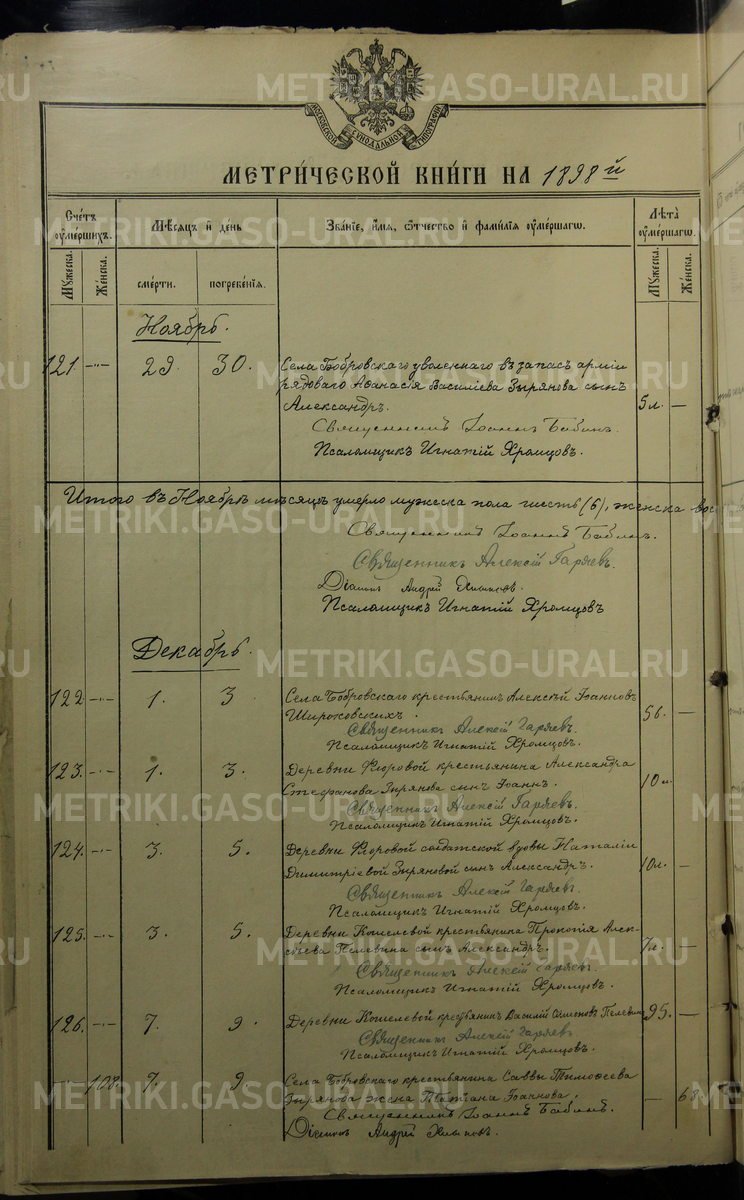 МОСКОВСКОЙ СѴНОДАЛЬНОЙ ТИПОГРАФІИ
МЕТРИ́ЧЕСКОЙ КНИ́ГИ НА 1898й
Сче́тъ ᲂу҆ме́ршихъ.
Мѣ́сяцъ и҆ де́нь
Зва́нїе, и҆́мя, ѻ҆́тчество и҆ фами́лїя ᲂу҆ме́ршагѡ.
Лѣ́та ᲂу҆ме́ршагѡ.
Мꙋ́жеска.
Же́нска.
сме́рти.
погребе́нїя.
Мꙋ́жеска
Же́нска.
Ноябрь.
121. -"- 29. 30. Села Бобровскаго уволеннаго въ запасъ арміи
рядоваго Аѳанасія Василіева Зырянова сынъ
Александръ. 5 л. —
Священникъ Іоаннъ Бабинъ.
Псаломщикъ Игнатій Хромцовъ.
Итого въ Ноябрѣ мѣсяцѣ умерло мужеска пола шесть (6), женска вос
Священникъ Іоаннъ Бабинъ.
Священникъ Алексій Гаряевъ.
Діаконъ Андрей
Псаломщикъ Игнатій Хромцовъ
Декабрь.
122 -"- 1. 3 Села Бобровскаго крестьянинъ Алексѣй Іоанновъ
Широковскихъ. 56. —
Священникъ Алексій Гаряевъ.
Псаломщикъ Игнатій Хромцовъ.
123. -"- 1. 3. Деревни крестьянина Александра
Стефанова Зырянова сынъ Іоаннъ. 10 л.
Священникъ Алексій Гаряевъ.
Псаломщикъ Игнатій Хромцовъ.
124. -"- 3. 5. Деревни солдатской вдовы Наталіи
Димитріевой Зыряновой сынъ Александръ. 10 л. —
Священникъ Алексій Гаряевъ.
Псаломщикъ Игнатій Хромцовъ.
125. -"- 3. 5. Деревни Кошелевой крестьянина Прокопія Алек-
сѣева Пелевина сынъ Александръ. 7 л. —
Священникъ Алексій Гаряевъ.
Псаломщикъ Игнатій Хромцовъ.
126. -"- 7. 9. Деревни Кошелевой крестьянинъ Василій Симеоновъ Пелевинъ 95. —
Священникъ Алексій Гаряевъ
Псаломщикъ Игнатій Хромцовъ.
-"- 108. 7. 9 Села Бобровскаго крестьянина Саввы Тимоѳеева
Зырянова жена Татіана Іоаннова. — 68
Священникъ Іоаннъ Бабинъ.
Діаконъ Андрей
METRIKI.GASO-URAL.RU